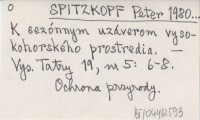 o
SPITZKOPF Peter 1980...
K sezónnym uzáverom vyso-
kohorského prostredia. —
Vys. Tatry 19, no 5: 6-8.
Ochrona przyrody.